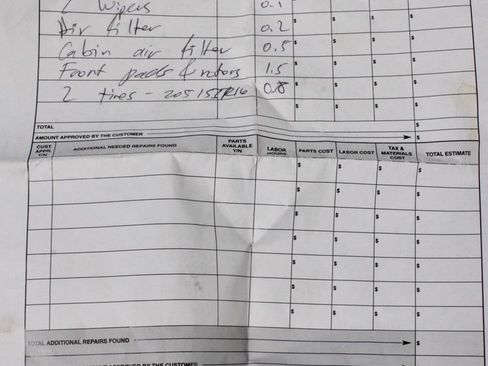 2 Wipers 0.1
Air filter 0.2 $ $ $ $
Cabin air filter 0.5 $ $ $ $
Front pads & rotors 1.5 $ $ $ $
2 tires - 205/55R16 0.8 $ $ $ $
$ $ $ $
TOTAL $
AMOUNT APPROVED BY THE CUSTOMER $
CUST. APPR. Y/N ADDITIONAL NEEDED REPAIRS FOUND PARTS AVAILABLE Y/N LABOR HOURS PARTS COST LABOR COST TAX & MATERIALS COST TOTAL ESTIMATE
$ $ $ $
$ $ $ $
$ $ $ $
$ $ $ $
$ $ $ $
$ $ $ $
$ $ $ $
TOTAL ADDITIONAL REPAIRS FOUND $
APPROVED BY THE CUSTOMER $